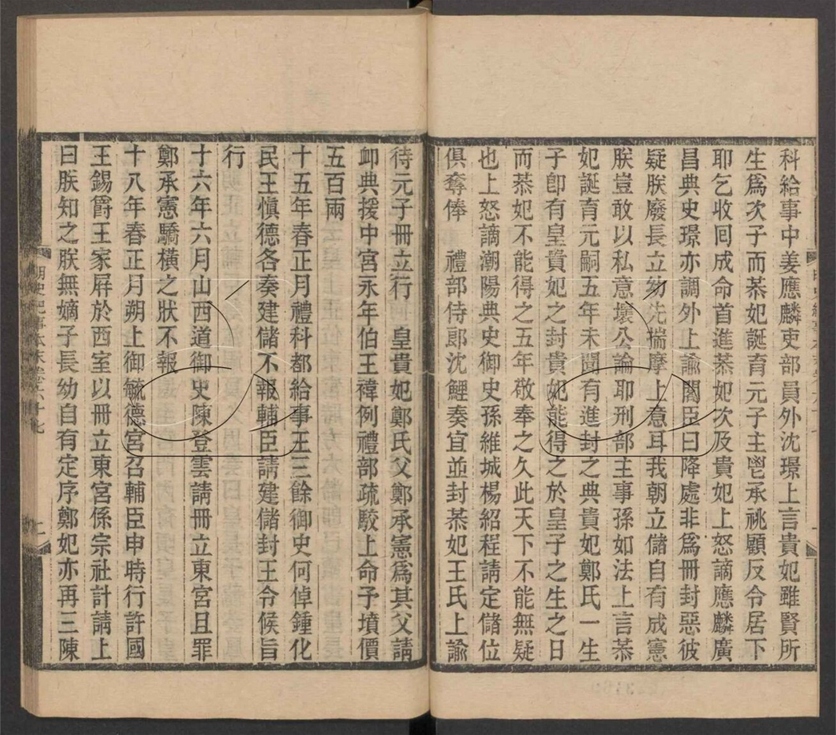 科給事中姜應麟吏部員外沈璟上言貴妃雖賢所
生爲次子而恭妃誕育元子主鬯承祧顧反令居下
耶乞收回成命首進恭妃次及貴妃上怒謫應麟廣
昌典史璟亦調外上諭閣臣曰降處非爲冊封惡彼
疑朕廢長立幼先揣摩上意耳我朝立儲自有成憲
朕豈敢以私意壞公論耶刑部主事孫如法上言恭
妃誕育元嗣五年未聞有進封之典貴妃鄭氏一生
子卽有皇貴妃之封貴妃能得之於皇子之生之日
而恭妃不能得之五年敬奉之久此天下不能無疑
也上怒謫潮陽典史御史孫維城楊紹程請定儲位
俱奪俸　禮部侍郎沈鯉奏宜並封恭妃王氏上諭
待元子冊立行　皇貴妃鄭氏父鄭承憲爲其父請
卹典援中宮永年伯王禕例禮部疏駮上命予墳價
五百兩
十五年春正月禮科都給事王三餘御史何倬鍾化
民王愼德各奏建儲不報輔臣請建儲封王令候旨
行
十六年六月山西道御史陳登雲請冊立東宮且罪
鄭承憲驕橫之狀不報
十八年春正月朔上御毓德宮召輔臣申時行許國
王錫爵王家屏於西室以冊立東宮係宗社計請上
曰朕知之朕無嫡子長幼自有定序鄭妃亦再三陳
明史紀事本末卷六十七
二